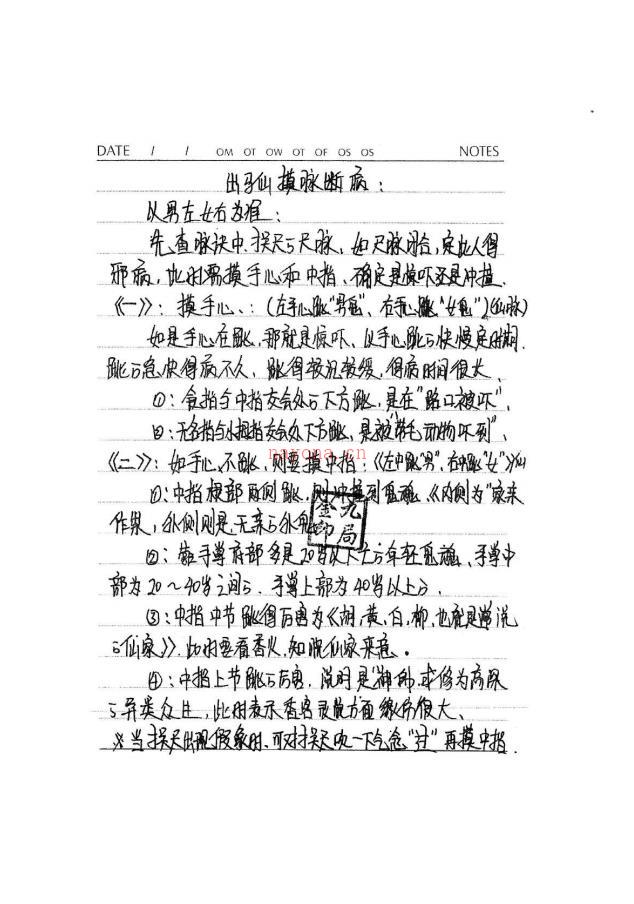 DATE / / OM OT OW OT OF OS OS NOTES
出马仙摸脉断病：
以男左女右为准：
先查脉诀中、拟尺与尺脉、如尺脉闭合，定此人得
邪病，此时需要摸手心和中指、确定是惊吓还是冲撞.
《一》：摸手心、：(左手心跳"男鬼"、右手心跳"女鬼")(仙脉)
如是手心在跳，那就是惊吓、以手心跳的快慢定时间.
跳的急快得病不久、跳得较沉较缓，得病时间很久、
①：食指与中指交会处的下方跳，是在"路口被吓"、
②：无名指与小拇指交会处下方跳、是被"带毛动物吓到"、
《二》：如手心不跳、则要摸中指：《左中跳"男"、右中跳"女"》仙
①：中指根部两侧跳、则冲撞到鬼魂、《内侧为"家亲
作祟，外侧则是无亲的外鬼
②：手掌底部多是20岁以下的年轻鬼魂、手掌中
部为20～40岁之间的、手掌上部为40岁以上的、
③：中指中节跳得厉害为《胡，黄，白，柳，也就是常说
的仙家》、此时要看香火，知晓仙家来意。
④：中指上节跳的厉害，说明是"神和或修为高深
的异类众生，此时表示香客灵魂方面缘份很大、
※当出现假象时、可对吹一下气念"" 再摸中指.
nayona.cn
金九
印局